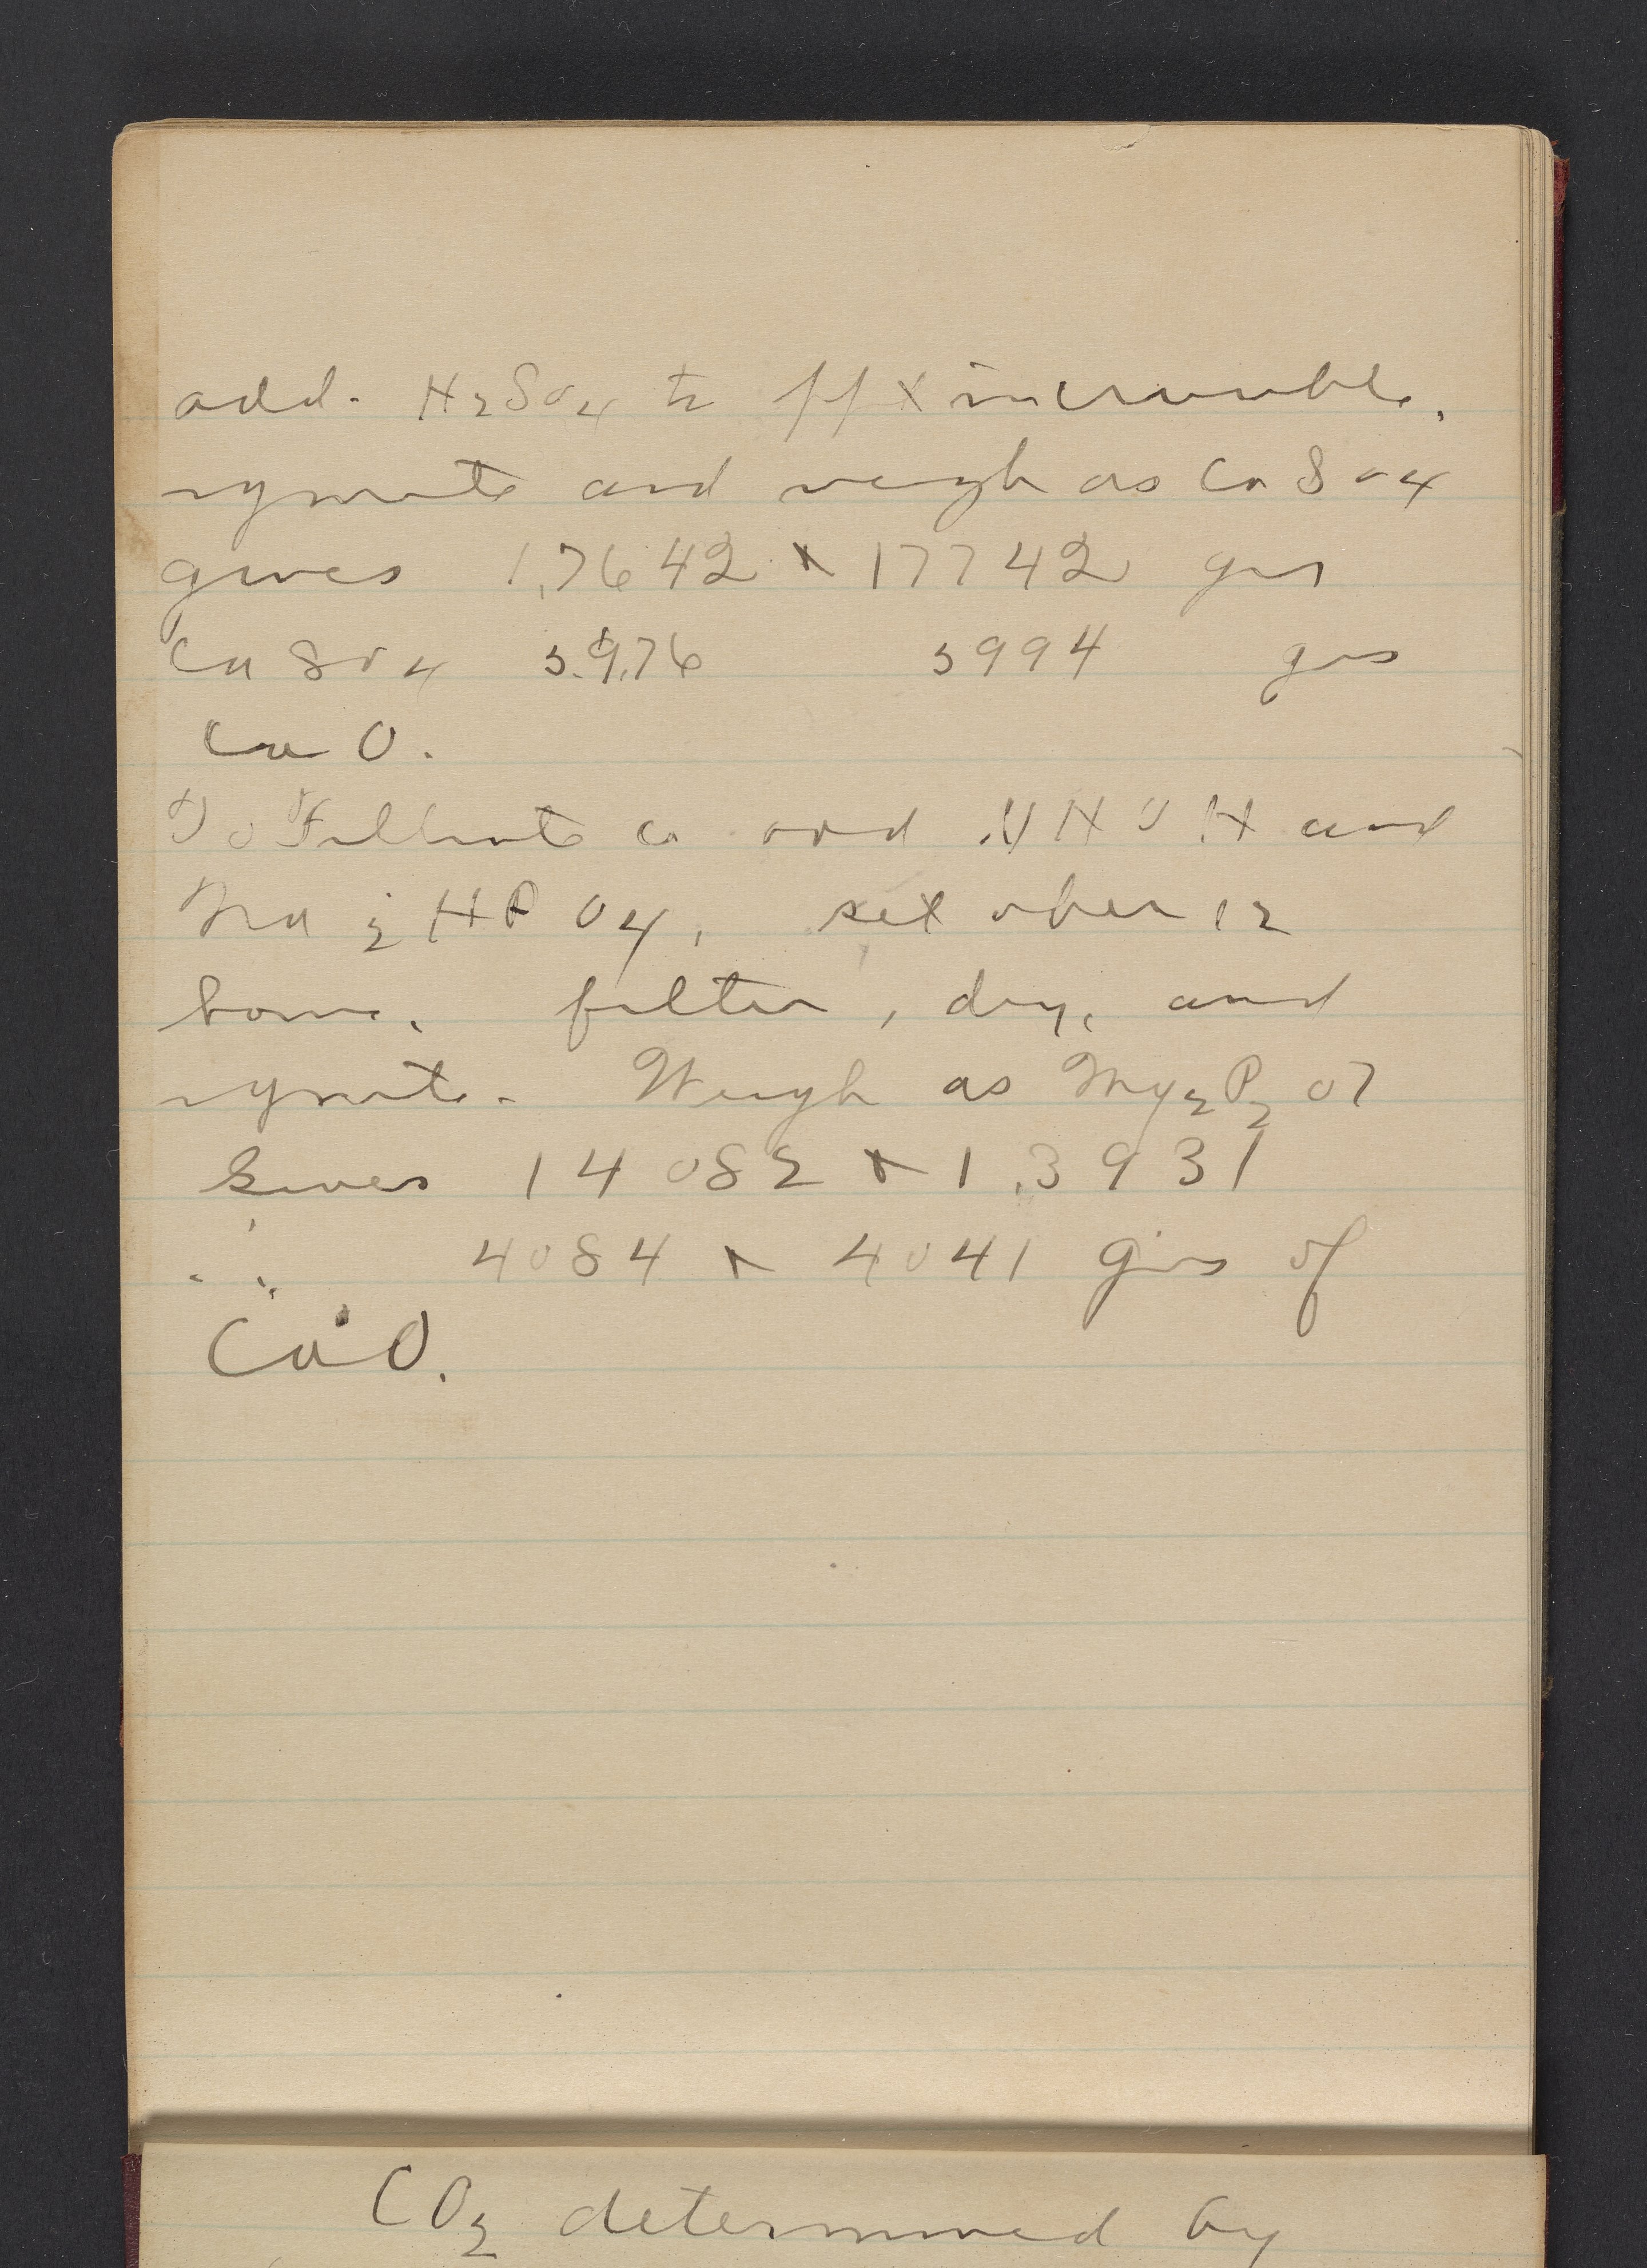 add. H2SO4 to ppt in crucible.
ignite and weigh as CaSO4
gives 1.7642 & 17742 gms
CaSO4 5.9.76 5994 gms
CaO.
To Filtrate a add NHOH and
Na2HPO4, set over 12
hours. filter, dry, and
ignite. Weigh as Mg2P2O7
Gives 14082 & 1.3931
∴ 4084 & 4041 gms of
CaO.
CO2 determined by